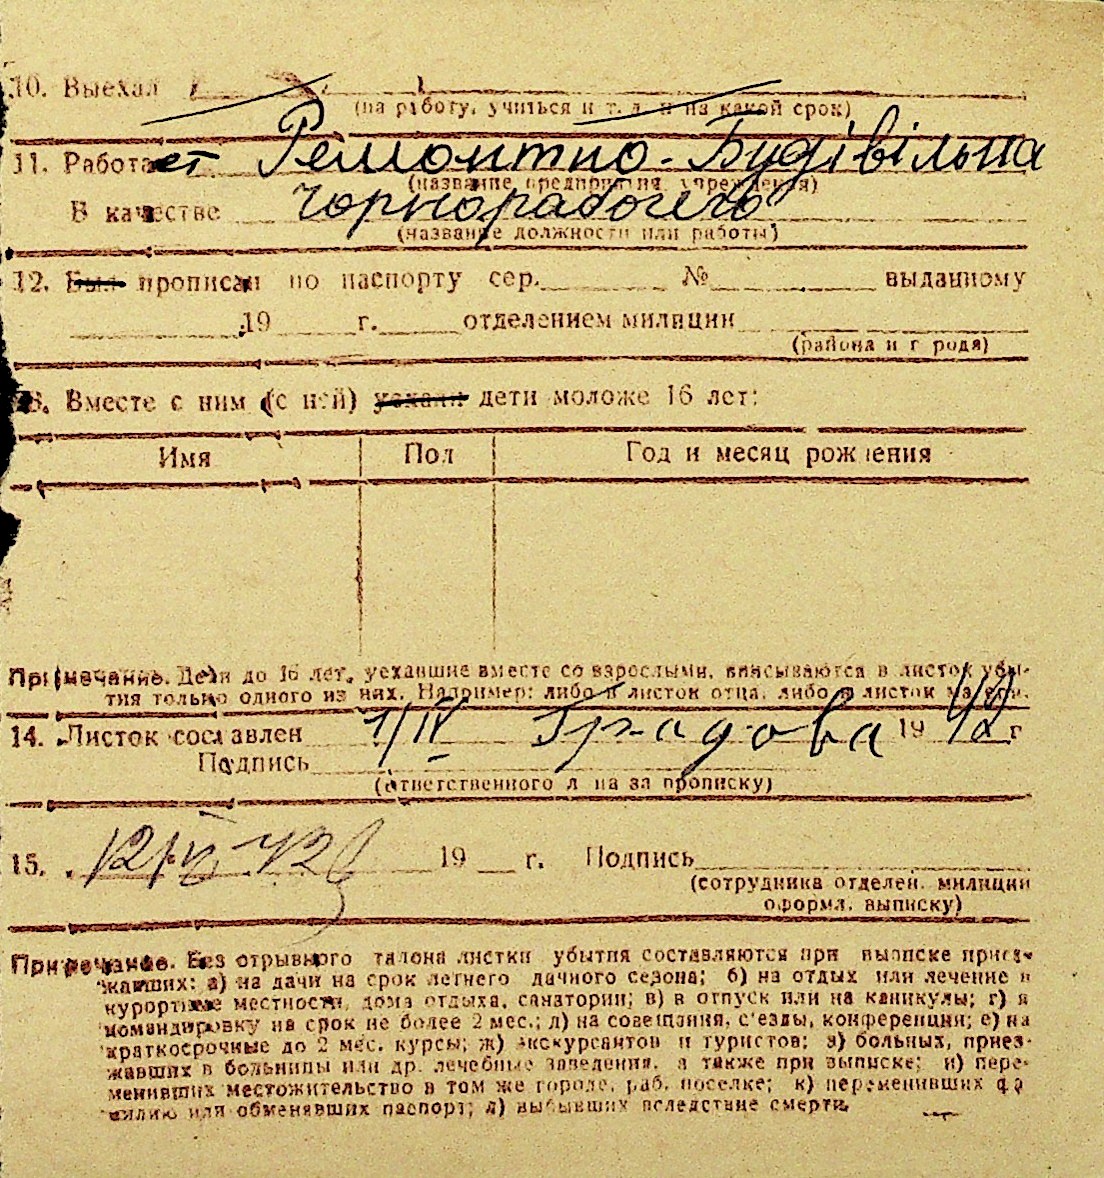 10. Выехал
(на работу, учиться и т. д. и на какой срок)
11. Работает Ремонтно-Будівільна
(название предприятия, учреждения)
В качестве чорнорабочего
(название должности или работы)
12. Был прописан по паспорту сер. № выданному
19 г. отделением милиции
(района и города)
13. Вместе с ним (с ней) уехали дети моложе 16 лет:
Имя Пол Год и месяц рождения
Примечание. Дети до 16 лет, уехавшие вместе со взрослыми, вписываются в листок убы-
тия только одного из них. Например: либо в листок отца, либо в листок матери.
14. Листок составлен 1/IV Градова 1942 г
Подпись
(ответственного лица за прописку)
15. 19 г. Подпись
(сотрудника отделен. милиции
оформл. выписку)
Примечание. Без отрывного талона листки убытия составляются при выписке приез-
жавших: а) на дачи на срок летнего дачного сезона; б) на отдых или лечение в
курортные местности, дома отдыха, санатории; в) в отпуск или на каникулы; г) в
командировку на срок не более 2 мес.; д) на совещания, с'езды, конференции; е) на
краткосрочные до 2 мес. курсы; ж) экскурсантов и туристов; з) больных, приез-
жавших в больницы или др. лечебные заведения, а также при выписке; и) пере-
менивших местожительство в том же городе, раб. поселке; к) переменивших фа-
милию или обменявших паспорт; л) выбывших вследствие смерти.